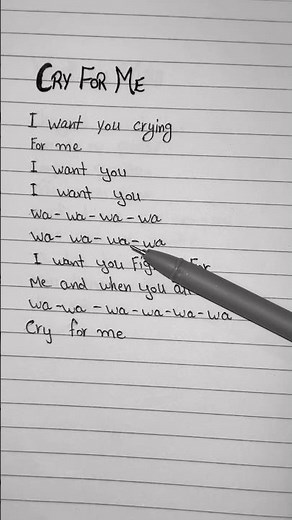 CRY FOR ME
I want you crying
For me
I want you
I want you
wa-wa-wa-wa
wa-wa-wa-wa
I want you For
Me and when you
wa-wa-wa-wa-wa-wa
Cry for me